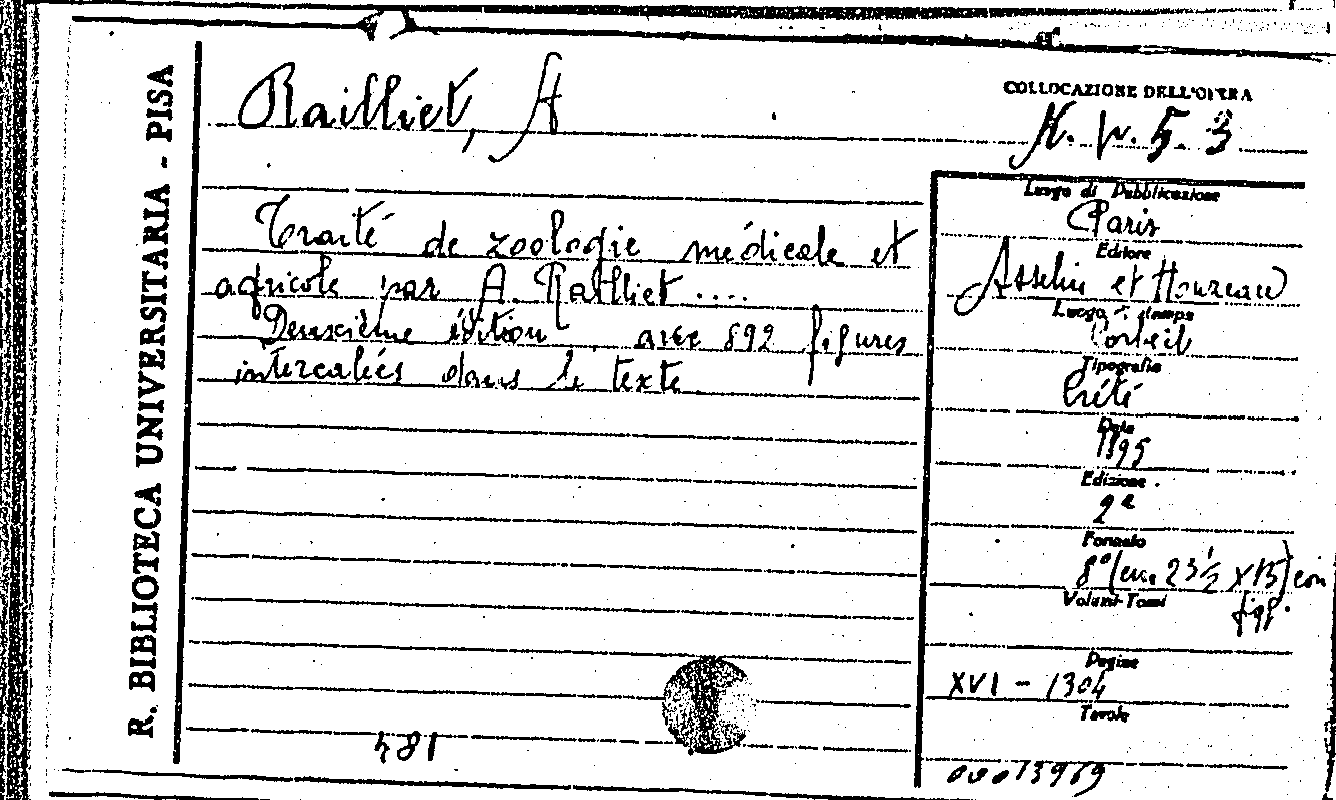 R. BIBLIOTECA UNIVERSITARIA - PISA
Railliet, A
COLLOCAZIONE DELL'OPERA
5. 3
Traité de zoologie médicale et
agricole par A. Railliet ....
Deuxième édition, avec 892 figures
intercalées dans le texte
Luogo di Pubblicazione
Paris
Editore
Asselin et Houzeau
Luogo di stampa
Corbeil
Tipografia
Crété
Data
1895
Edizione
2ª
Formato
8° (cm. 23½ X15) con
figg.
Volumi-Tomi
Pagine
XVI - 1304
Tavole
481
00013969